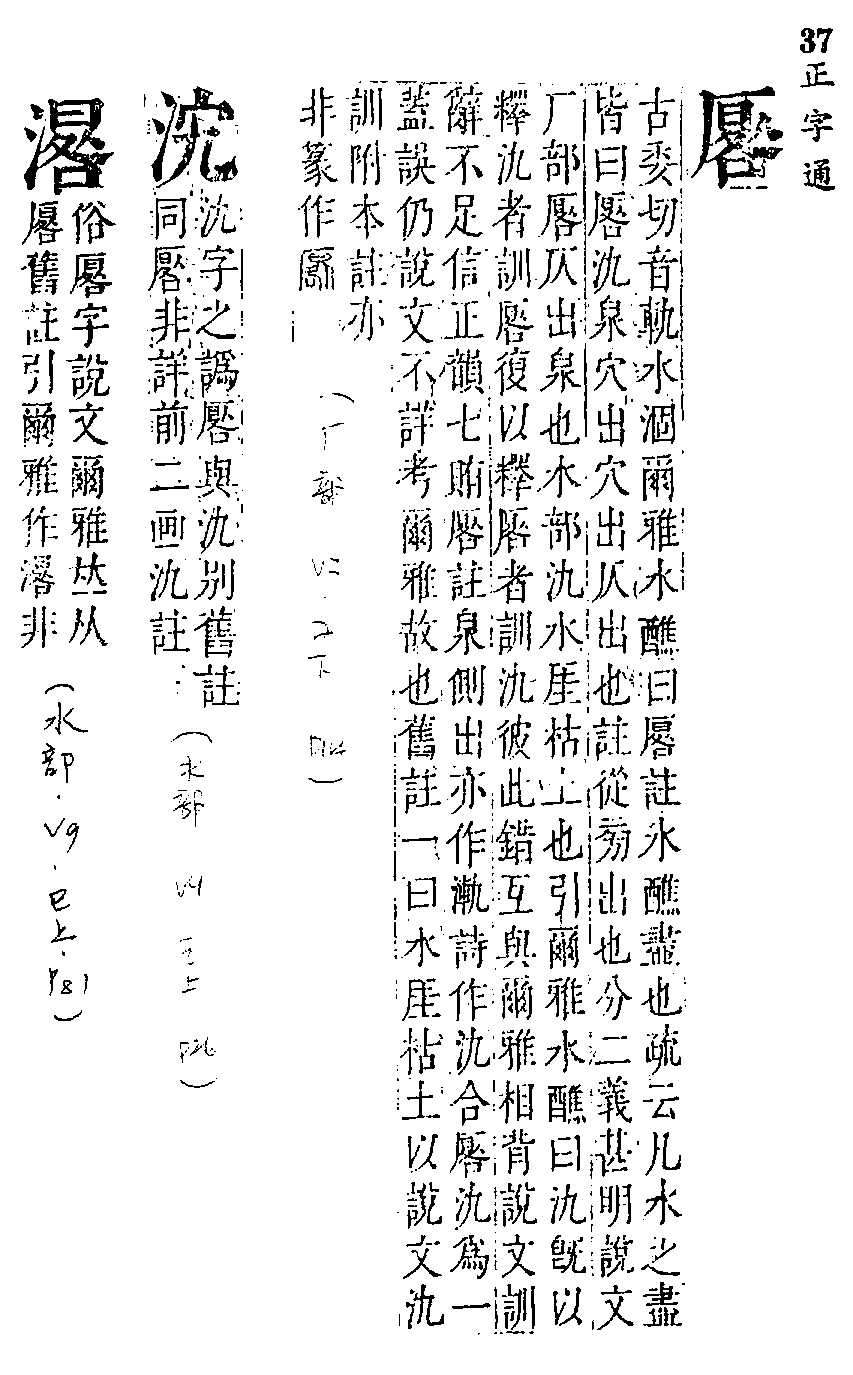 37 正字通
厬
古委切音軌水涸爾雅水醮曰厬註水醮盡也疏云凡水之盡
皆曰厬氿泉穴出穴出仄出也註從旁出也分二義甚明說文
厂部厬仄出泉也水部氿水厓枯土也引爾雅水醮曰氿旣以
釋氿者訓厬復以釋厬者訓氿彼此錯互與爾雅相背說文訓
辭不足信正韻七賄厬註泉側出亦作漸詩作氿合厬氿爲一
蓋誤仍說文不詳考爾雅故也舊註一曰水厓枯土以說文氿
訓附本註亦
非篆作厬
(厂部 V2.子下 P124)
氿
氿字之譌厬與氿別舊註
同厬非詳前二画氿註
(水部 V9 巳上 P26)
漝
俗厬字說文爾雅𠀤从
厬舊註引爾雅作漝非
(水部.V9.巳上.P81)